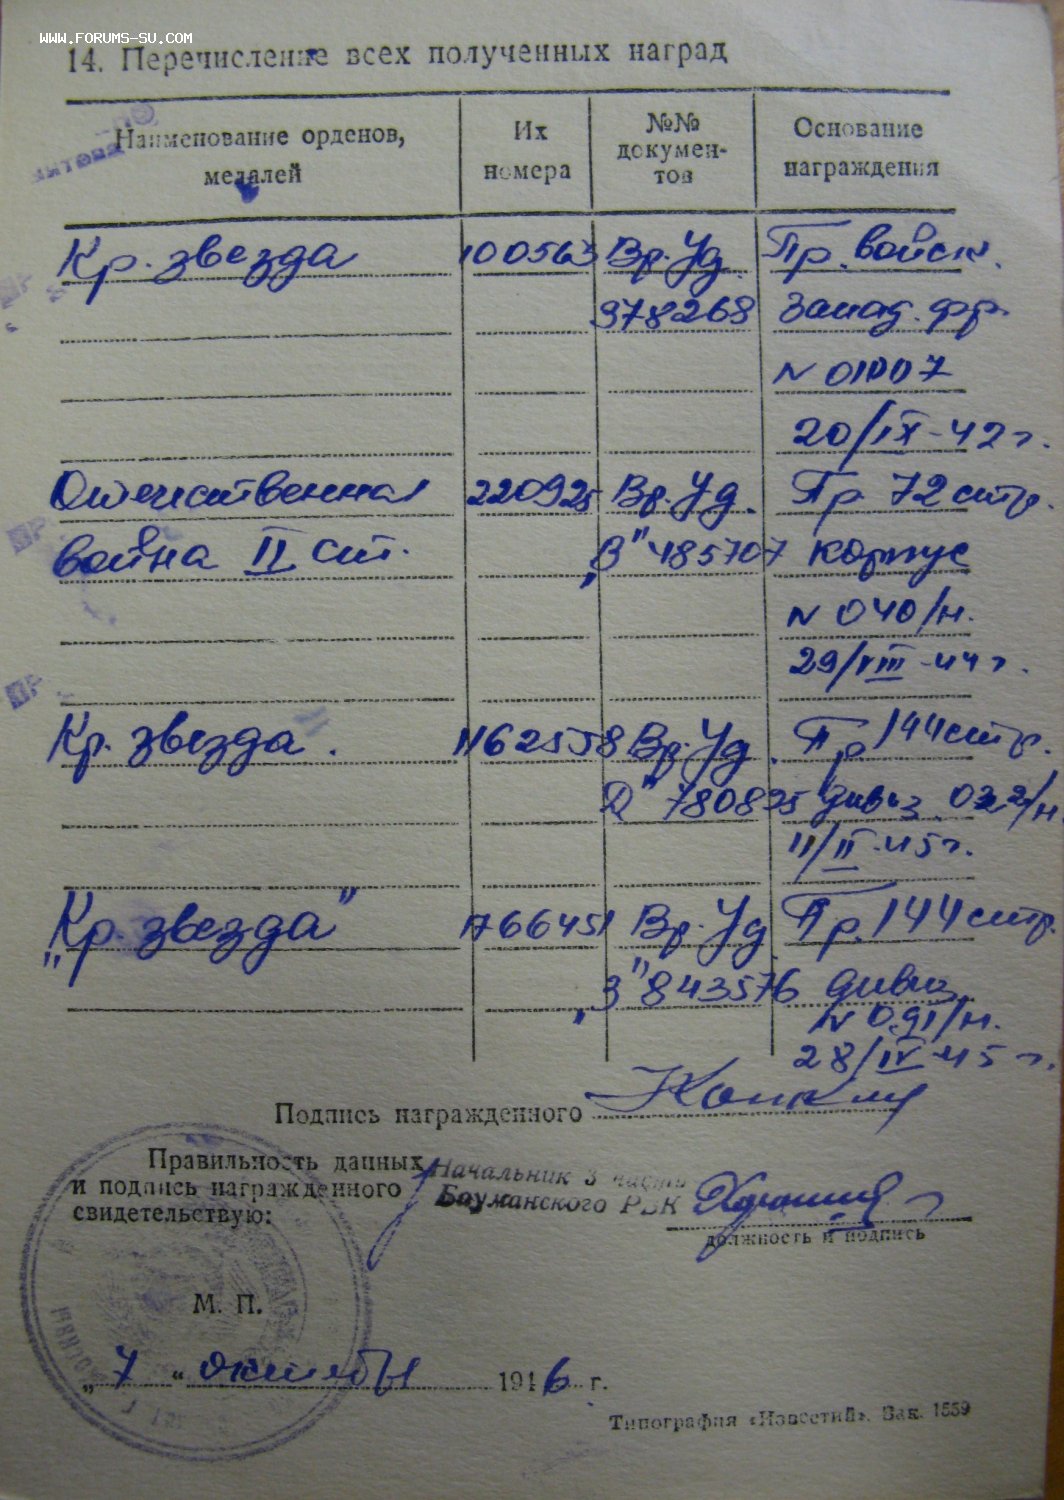 www.forums-su.com
14. Перечисление всех полученных наград
Наименование орденов, медалей
Их номера
№№ докумен-тов
Основание награждения
Кр. звезда 100563 Вр. Уд. Пр. войск.
978268 Запад. фр.
N 01007
20/IX-42 г.
Отечественная 220925 Вр. Уд. Пр. 72 стр.
война II ст. „В" 485707 корпус
N 040/н.
29/VIII-44 г.
Кр. звезда. 1162558 Вр. Уд. Пр. 144 стр.
780895 дивиз.
11/II-45 г.
„Кр. звезда" 1766451 Вр. Уд Пр. 144 стр.
„З" 843576 дивиз
N 091/н.
28/IV-45 г.
Подпись награжденного
Правильность данных
и подпись награжденного
свидетельствую:
Начальник 3 части
Бауманского РВК
должность и подпись
М. П.
„7“ октября 1946 г.
Типография «Известий». Зак. 1559